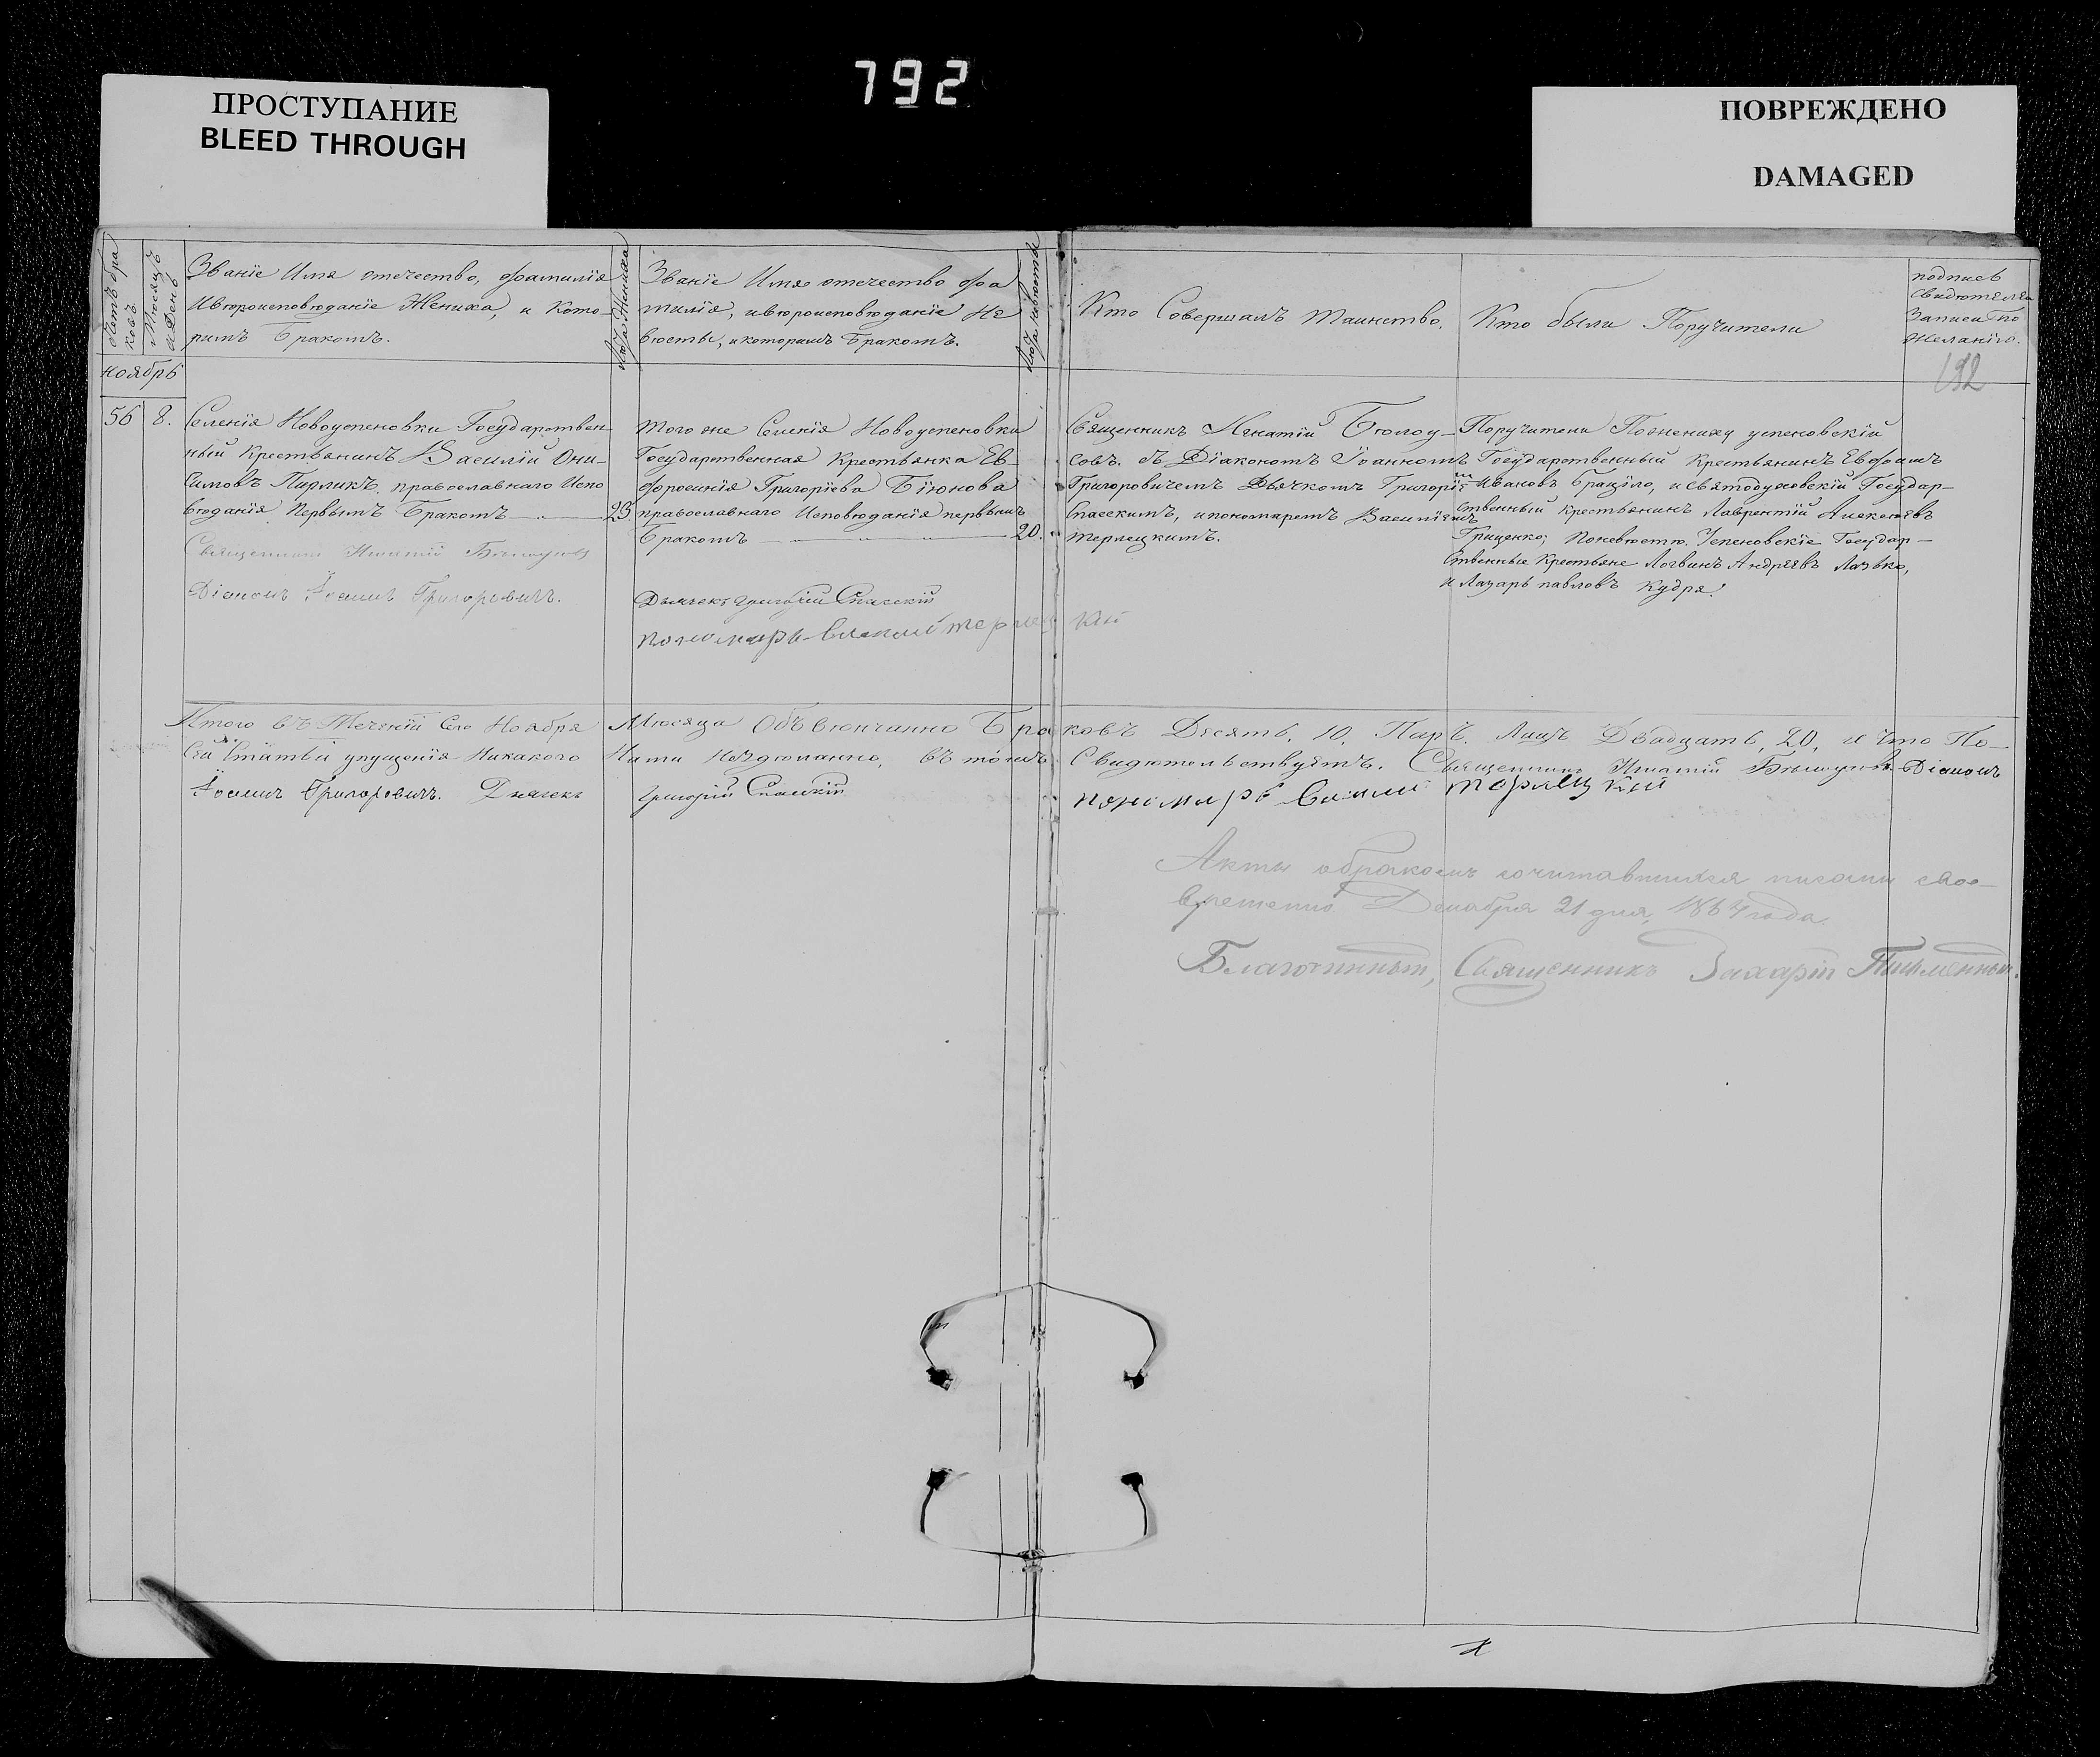 792
ПРОСТУПАНИЕ
BLEED THROUGH
ПОВРЕЖДЕНО
DAMAGED
Счетъ бра
ковъ
Мѣсяцъ
и День
Званіе Имя отечество, фамилія
ивѣроисповѣданіе Жениха, и Кото-
римъ Бракомъ.
Лѣта Жениха
Званіе Имя отечество фа
милія, ивѣроисповѣданіе Не
вѣсты, икоторимъ Бракомъ.
Лѣта невѣсты
Кто Совершалъ таинство.
Кто были Поручители
подпись
свидѣтелей
Записи по
желанію.
192
ноябрь
56 8.
Селенія Новоуспеновки Государствен
ный Крестьянинъ Василій Они-
симовъ Пирликъ православнаго Испо
вѣданія Первымъ Бракомъ 23
Священникъ Игнатій
Діаконъ Іоаннъ Григоровичъ.
того же Селенія Новоуспеновки
Государственная Крестьянка Ев-
фросинія Григоріева Біюнова
православнаго Исповѣданія первымъ
Бракомъ 20.
Дьячекъ Григорій Спасскій
пономарь Василій Терлецкій
Священникъ Игнатій Бѣлоу-
совъ. съ Діакономъ Іоанномъ
Григоровичемъ Дьячкомъ Григоріемъ
Спасскимъ, ипономаремъ Василіемъ
терлецкимъ.
Поручители Пожениху успеновскій
Государственный Крестьянинъ Евфамъ
Ивановъ Брацило, исвятодуховскій Государ-
ственный крестьянинъ Лаврентій Алексѣевъ
Гриценко; Поневѣстѣ. Успеновскіе Государ-
ственные Крестьяне Логвинъ Андреевъ Лазько,
и Лазарь павловъ Кудря.
Итого въ Теченіи Сего Ноября Мѣсяца Объвѣнчанно Браковъ Десять, 10, Паръ. Лицъ Двадцать, 20, и что По-
Сей Статьи упущенія Никакого Нами Нездѣланно, въ томъ Свидѣтельствуемъ. Священникъ Игнатій Діаконъ
Іоаннъ Григоровичъ. Дьячекъ Григорій Спасскій пономарь Василий Терлецкий
Акты обракомъ сочитавшихся писаны свое-
временно Декабря 21 дня, 1864 года.
Благочинный, Священникъ Захарій